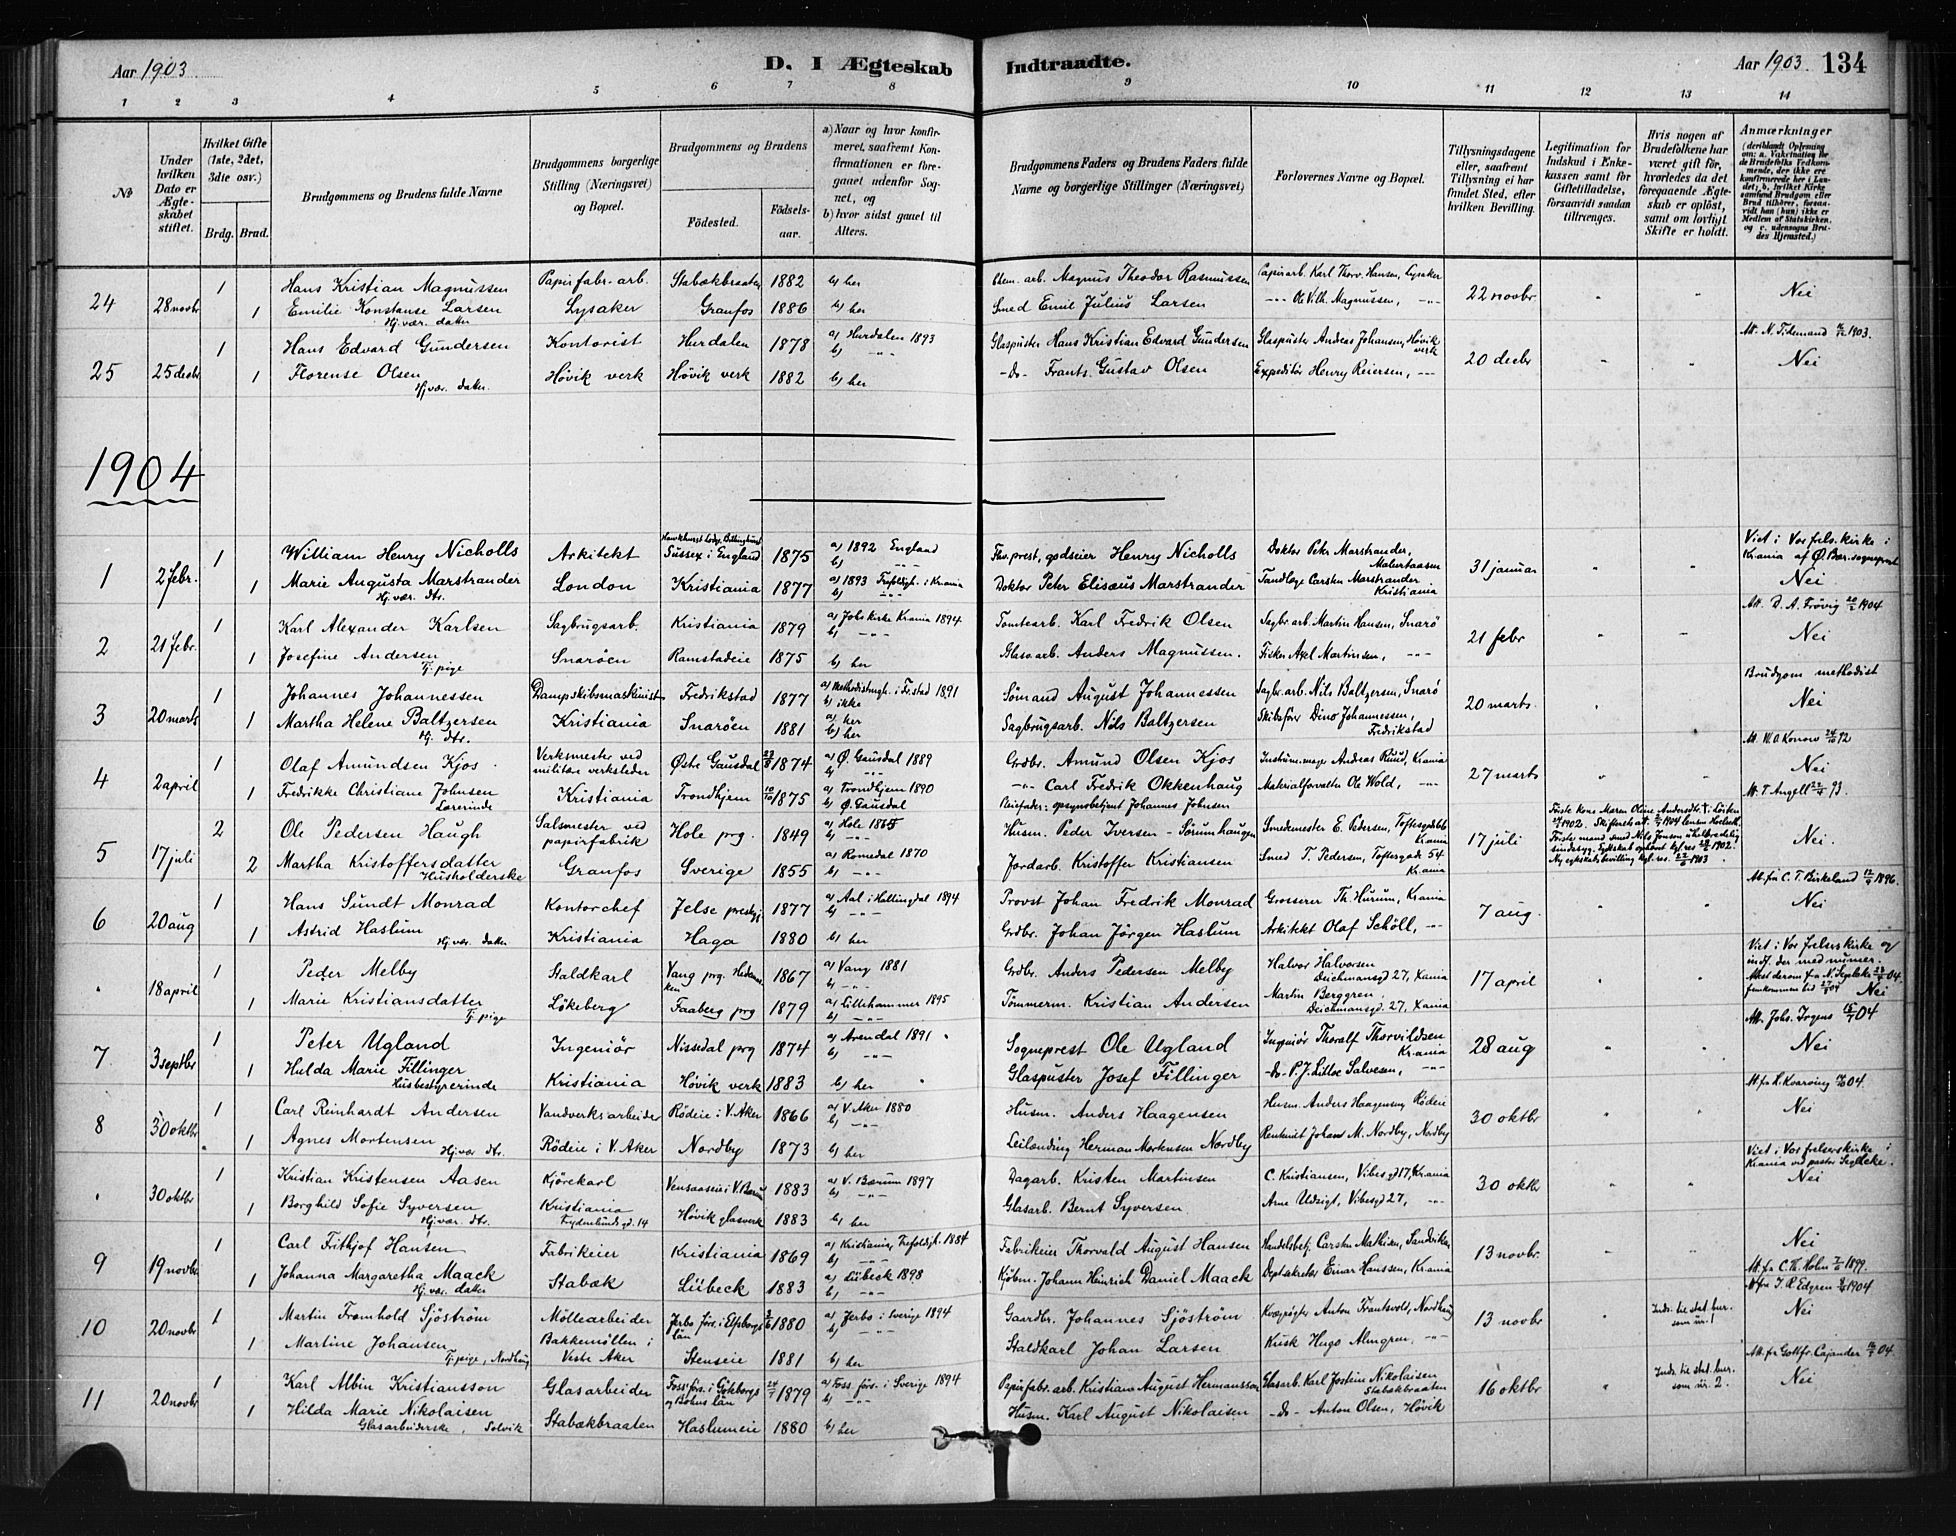 Aar 1903
D. I Ægteskab Indtraadte.
Aar 1903. 134
1 2 3 4 5 6 7 8 9 10 11 12 13 14
No
Under hvilken Dato er Ægteskabet stiftet.
Hvilket Gifte (1ste, 2det, 3die osv.)
Brdg. Brud.
Brudgommens og Brudens fulde Navne
Brudgommens borgerlige Stilling (Næringsvei) og Bopæl.
Brudgommens og Brudens
Fødested.
Fødselsaar.
a) Naar og hvor konfirmeret, saafremt Konfirmationen er foregaaet udenfor Sognet, og
b) hvor sidst gaaet til Alters.
Brudgommens Faders og Brudens Faders fulde Navne og borgerlige Stillinger (Næringsvei)
Forlovernes Navne og Bopæl.
Tillysningsdagene eller, saafremt Tillysning ei har fundet Sted, efter hvilken Bevilling.
Legitimation for Indskud i Enkekassen samt for Giftetilladelse, forsaavidt saadan tiltrænges.
Hvis nogen af Brudefolkene har været gift før, hvorledes da det foregaaende Ægteskab er opløst, samt om lovligt Skifte er holdt.
Anmærkninger
24 28 novbr 1 Hans Kristian Magnussen Papirfabr. arb. Stabækbraaten 1882 b) her arb. Magnus Theodor Rasmussen Papirarb. Karl Thorv. Hansen, Lysaker 22 novbr Nei
1 Emilie Konstanse Larsen Lysaker Granfos 1886 b) her Smed Emil Julius Larsen --- Ole Vilh. Magnussen, -"-
Hj. vær. datter
25 25 decbr 1 Hans Edvard Gundersen Kontorist Hurdalen 1878 a) Hurdalen 1893 b) -"- Glaspuster Hans Kristian Edvard Gundersen Glaspuster Andreas Johansen, Høvik verk 20 decbr Att. N. Tidemand 1903.
1 Florense Olsen Høvik verk Høvik verk 1882 b) her -do- Frants Gustav Olsen Expeditør Henry Reiersen, --- Nei
Hj. vær. datter
1904
1 2 febr. 1 William Henry Nicholls Arkitekt Sussex i England 1875 a) 1892 England b) -"- godseier Henry Nicholls Doktor Petr Marstrander, 31 januar Viet i Vor frels. kirke i Krania af
1 Marie Augusta Marstrander London Kristiania 1877 a) 1893 Trefoldigh. i Krania b) -"- Doktor Peter Elisæus Marstrander Tandlæge Carsten Marstrander Kristiania Nei
Hj. vær. dtr.
2 21 febr. 1 Karl Alexander Karlsen Sagbrugsarb. Kristiania 1879 a) Jobs kirke Krania 1894 b) -"- Tomtearb. Karl Fredrik Olsen Sagbr. arb. Martin Hansen, Snarø 21 febr Att. D. A. Frøvig 1904
1 Josefine Andersen Snarøen Ramstadeie 1875 b) her Glasarb. Anders Magnussen. Fisker Axel Martinsen, -"- Nei
Tj. pige
3 20 marts 1 Johannes Johannessen Dampskibsmaskinist Fredrikstad 1877 a) Methodistmgh. i F.stad 1891 b) ikke Sømand August Johannessen Sagbr. arb. Nils Baltzersen, Snarø 20 marts Brudgom methodist
1 Martha Helene Baltzersen Kristiania Snarøen 1881 a) her b) her Sagbrugsarb. Nils Baltzersen Skibsfører Dino Johannessen, Fredrikstad Nei
Hj. dtr.
4 2 april 1 Olaf Amundsen Kjos Verksmester ved militær verksteder Østre Gausdal 1874 a) Ø. Gausdal 1889 b) -"- Grdbr. Amund Olsen Kjos Instrum. mager Andreas Ruud, Krania 27 marts Att. W. O. Konow 92 Nei
1 Fredrikke Christiane Johnsen Kristiania Trondhjem 1875 a) Trondhjem 1890 b) Ø. Gausdal -"- Carl Fredrik Okkenhaug Materialforvalter Ole Wold, -"- Att. T. Angell 93.
Lærerinde Pleiefader: opsynsbetjent Johannes Johnsen
5 17 juli 2 Ole Pedersen Haugh Salmester ved papirfabrik Hole prg. 1849 a) Hole 1865 b) -"- Husm. Peder Iversen - Sørumhaugen Smedemester E. Pedersen, Toftesgd Krania 17 juli Nei
2 Martha Kristoffersdatter Granfos Sverige 1855 a) Romedal 1870 b) -"- Jordarb. Kristoffer Kristiansen Smed T. Pedersen, Toftesgade 54 Krania
Husholderske
6 20 aug 1 Hans Sundt Monrad Kontorchef Jelse prestgj. 1877 a) Aal i Hallingdal 1894 b) -"- Provst Johan Fredrik Monrad Grosserer Th. Hurum, Krania 7 aug. Att. fra C. T. Birkeland 1896. Nei
1 Astrid Haslum Kristiania Haga 1880 b) her Grdbr. Johan Jørgen Haslum Arkitekt Olaf Schöll, -"-
Hj. vær. datter
" 18 april 1 Peder Melby Staldkarl Vang prg. Hedemarken 1867 a) Vang 1881 b) -"- Grdbr. Anders Pedersen Melby Halvor Halvorsen Deichmansgd 27, Xania 17 april Viet i Vor frelserskirke og indf. der med numer.
1 Marie Kristiansdatter Løkeberg Faaberg prg 1879 a) Lillehammer 1895 b) -"- Tømmerm. Kristian Andersen Martin Berggren, Deichmansgd. 27, Xania Nei
Tj. pige
7 3 septbr 1 Peter Ugland Ingeniør Nissedal prg 1874 a) Arendal 1891 b) -"- Sogneprest Ole Ugland Ingeniør Thoralf Thorvildsen Krania 28 aug Att. Johs. Irgens 04 Nei
1 Hulda Marie Fillinger Kristiania Høvik verk 1883 b) her Glaspuster Josef Fillinger -do- P. J. Salvesen, -"-
Husbestyrerinde
8 30 oktbr 1 Carl Reinhardt Andersen Vandverksarbeider Rødeie i V. Aker 1866 a) V. Aker 1880 b) -"- Husm. Anders Haagensen Husm. Anders Haagensen, Rødeie 30 oktbr Att. fra H. Kvarving 04. Nei
1 Agnes Mortensen Rødeie i V. Aker Nordby 1873 b) her Leilænding Herman Mortensen Nordby Johans M. Nordby, Nordby
Hj. vær. dtr.
" 30 oktbr 1 Kristian Kristensen Aasen Kjørekarl Vensaaseie i V. Bærum 1883 a) V. Bærum 1897 b) -"- Dagarb. Kristen Martinsen C. Kristiansen, Vibesgd 17, Krania 30 oktbr Viet i Vor frelserskirke i Krania ved pastor Nei
1 Borghild Sofie Syversen Kristiania Fydenlundsgd. 14 Høvik glasverk 1883 b) her Glasarb. Bernt Syversen Arne Udsigt, Vibesgd 27, -"-
Hj. vær. dtr.
9 19 novbr 1 Carl Frithjof Hansen Fabrikeier Kristiania 1869 a) Kristiania, Trefoldigh. 1884 b) -"- Fabrikeier Thorvald August Hansen Handelsbetj. Carsten Mathisen, Sandviken 13 novbr Nei
1 Johanna Margaretha Maack Stabæk Lübeck 1883 a) Lübeck 1898 b) -"- Kjøbm. Johann Heinrich Daniel Maack Deptsekretær Einar Hanssen, Krania Att. fra C. H. Holm 1899.
Hj. vær. datter Att. fra J. R. Edgren 1904
10 20 novbr 1 Martin Fromhold Sjöström Møllearbeider Jerbo förs. i Elfsborgs län 1880 a) Jerbo i Sverige 1894 b) -"- Gaardbr. Johannes Sjöström Kvægrøgter Anton Frantsvold, Nordhaug 13 novbr Inds. til stat. bur. som nr. 1 Nei
1 Martine Johansen Bakkemøllen i Vestre Aker Stenseie 1881 b) her Staldkarl Johan Larsen Kusk Hugo Almgren, -"-
Tj. pige, Nordhaug Att. fra Gottfr. Cajander 04.
11 20 novbr 1 Karl Albin Kristiansson Glasarbeider Foss förs. i Göteborgs og Bohus län 1879 a) Foss förs. i Sverige 1894 b) -"- Papirfabr. arb. Kristian August Hermansson Glasarb. Karl Jostein Nikolaisen Stabækbraaten 16 oktbr Inds. til stat. bur. som nr. 2. Nei
1 Hilda Marie Nikolaisen Stabækbraaten Haslumeie 1880 b) her Husm. Karl August Nikolaisen -do- Anton Olsen, Høvik
Glasarbeiderske, Solvik